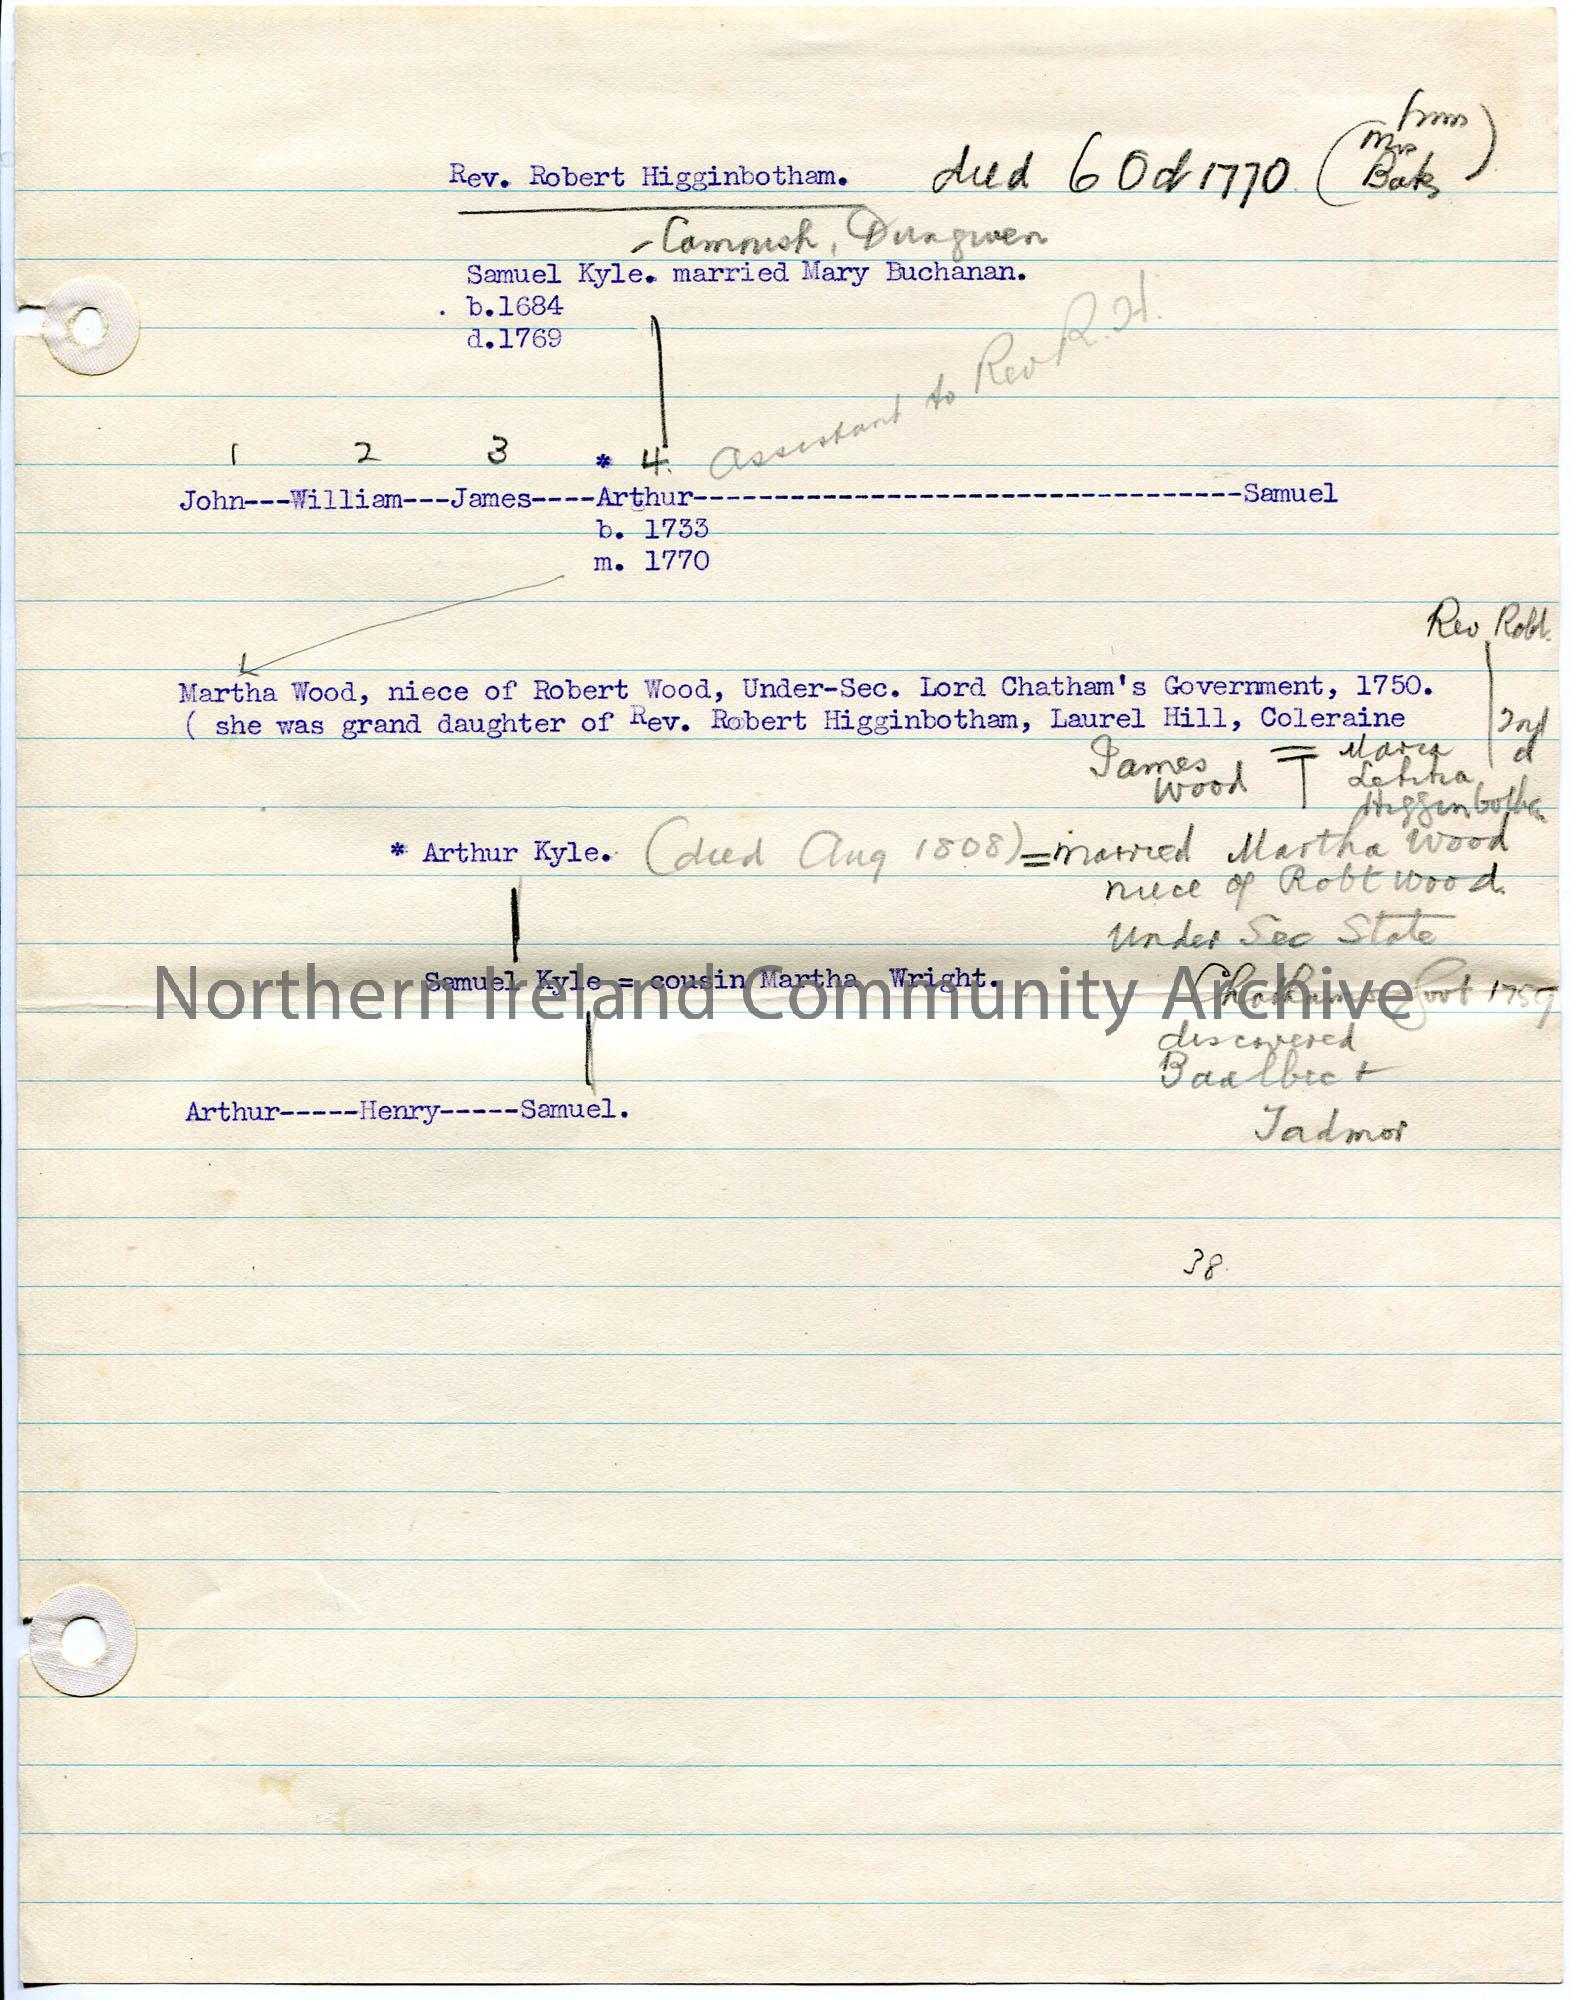 Rev. Robert Higginbotham. died 6 Oct 1770 (from Mrs
- Camnish, Dungiven
Samuel Kyle. married Mary Buchanan.
b.1684
d.1769
Assistant to Rev R. H.
1 2 3 * 4.
John---William---James----Arthur----------------------------------Samuel
b. 1733
m. 1770
Rev Robt.
Martha Wood, niece of Robert Wood, Under-Sec. Lord Chatham's Government, 1750.
( she was grand daughter of Rev. Robert Higginbotham, Laurel Hill, Coleraine
2nd d
James Wood = Maria Letitia Higginbotham
* Arthur Kyle. (died Aug 1808) = married Martha Wood
niece of Robt Wood.
Under Sec State
Samuel Kyle = cousin Martha Wright.
Chathams Govt 1759
Northern Ireland Community Archive
discovered
Baalbec +
Arthur-----Henry-----Samuel.
Tadmor
38.